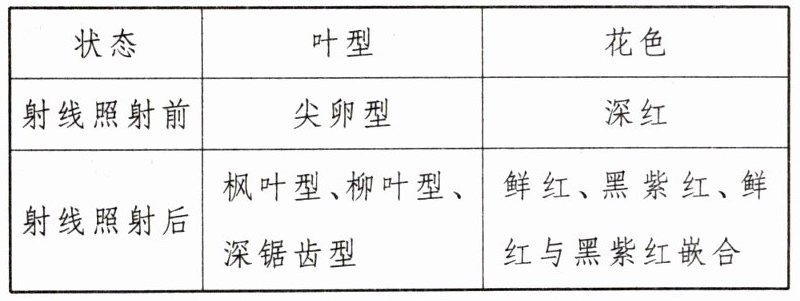 状态 叶型 花色
射线照射前 尖卵型 深红
射线照射后 枫叶型、柳叶型、深锯齿型 鲜红、黑紫红、鲜红与黑紫红嵌合